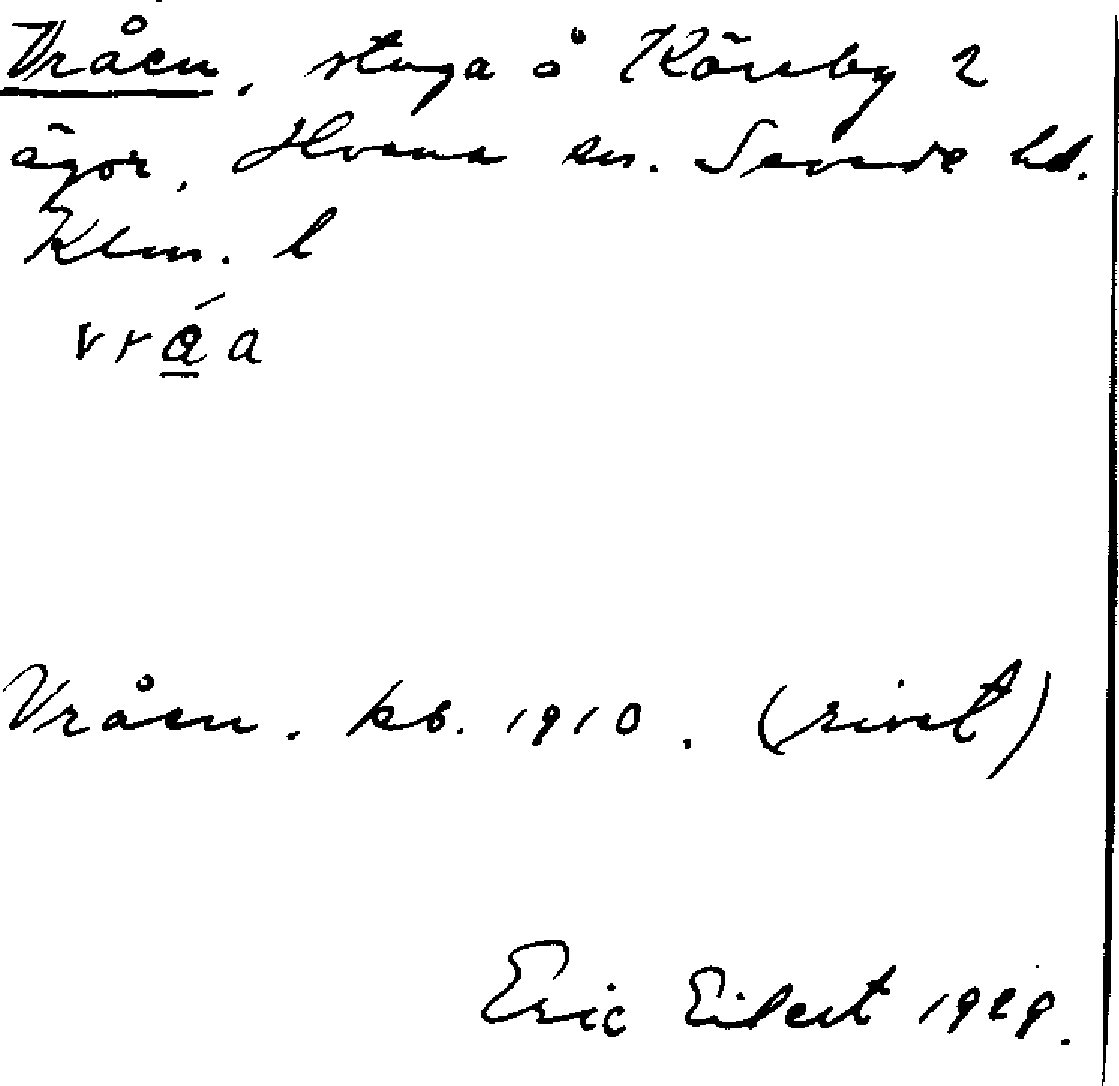 Vråen, stuga å Kärrby 2
ägor, Hvena sn. Sevede hd.
Klm. l
vrá̱a
Vråen. kb. 1910. (rivet)
Eric Eilert 1929.